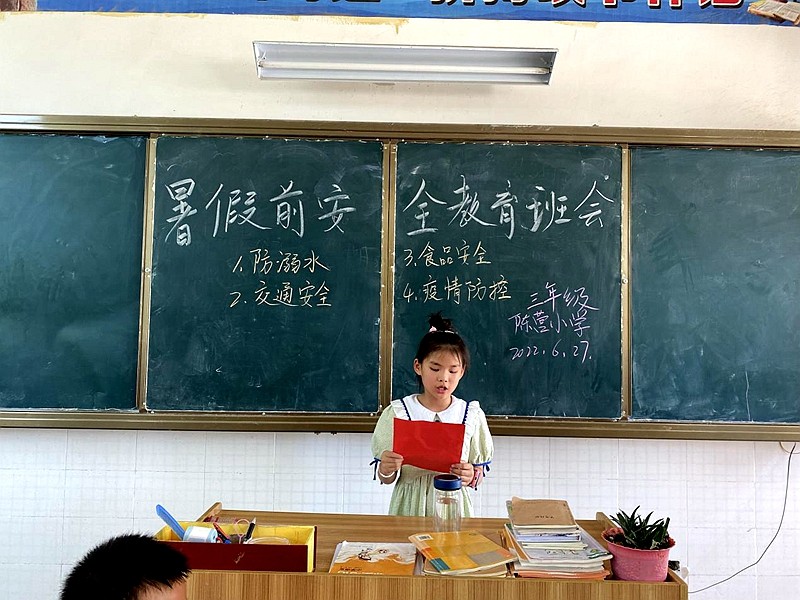 暑假前安全教育班会
1.防溺水
2.交通安全
3.食品安全
4.疫情防控
三年级
陈营小学
2022.6.27.